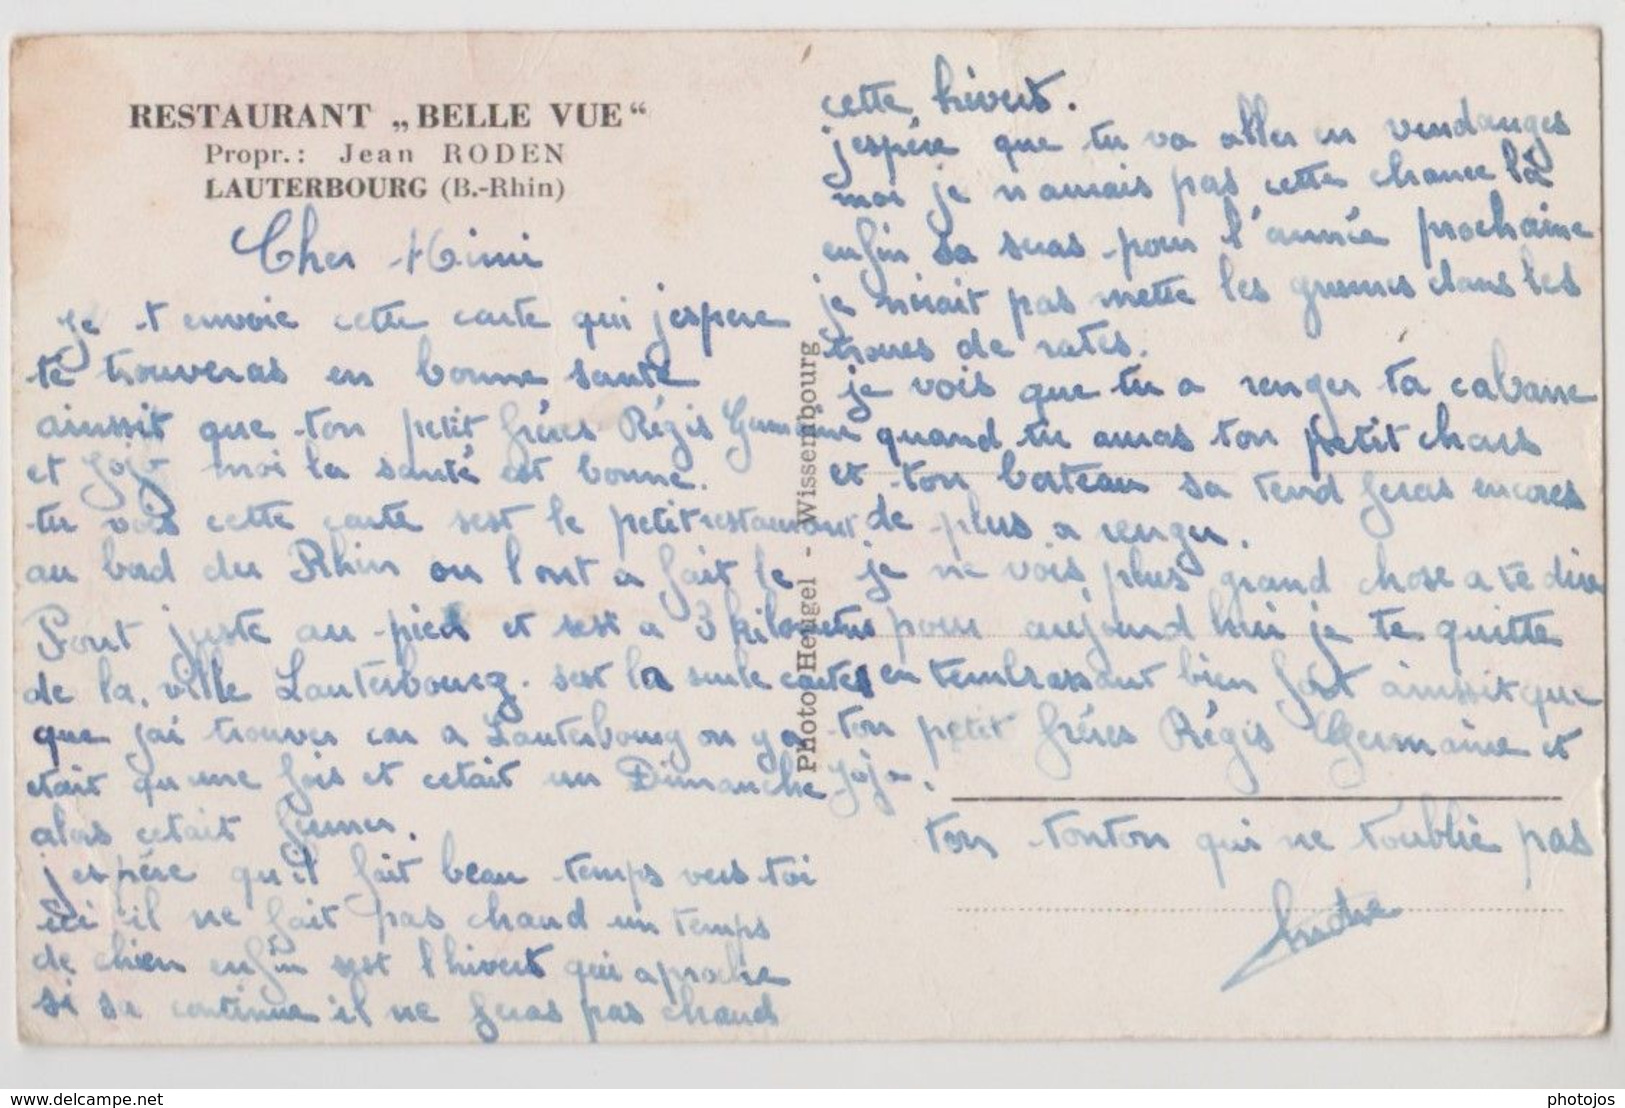 RESTAURANT „BELLE VUE“
Propr.: Jean RODEN
LAUTERBOURG (B.-Rhin)
Cher Mimi
je t envoie cette carte qui j'espere
te trouveras en bonne santé
ainssit que ton petit frères Régis Germaine
et Jojo moi la santé est bonne.
tu vois cette carte sest le petit restaurant
au bord du Rhin ou l ont a fait le
Pont juste au pied et sest a 3 kilometres
de la ville Lauterbourg. sest la seule cartes
que j'ai trouver car a Lauterbourg on y a
etait qu une fois et cetait un Dimanche
alors cetait fermer.
j espère qu'il fait beau temps vers toi
ici il ne fait pas chaud un temps
de chien enfin sest l'hivert qui aproche
si sa continue il ne feras pas chaud
Photo Heugel - Wissembourg
cette hivert.
j'espére que tu va aller en vendanges
moi je n aurais pas cette chance là
enfin sa seras pour l'année prochaine
je n'irait pas mettre les grumes dans les
troues de rates.
je vois que tu a renger ta cabane
quand tu auras ton petit chars
et ton bateau sa tend feras encores
de plus a renger.
je ne vois plus grand chose a te dire
pour aujourd hui je te quitte
en tembrassant bien fort ainssit que
ton petit frères Régis Germaine et
Jojo.
ton tonton qui ne t'oublie pas
André
www.delcampe.net
photojos